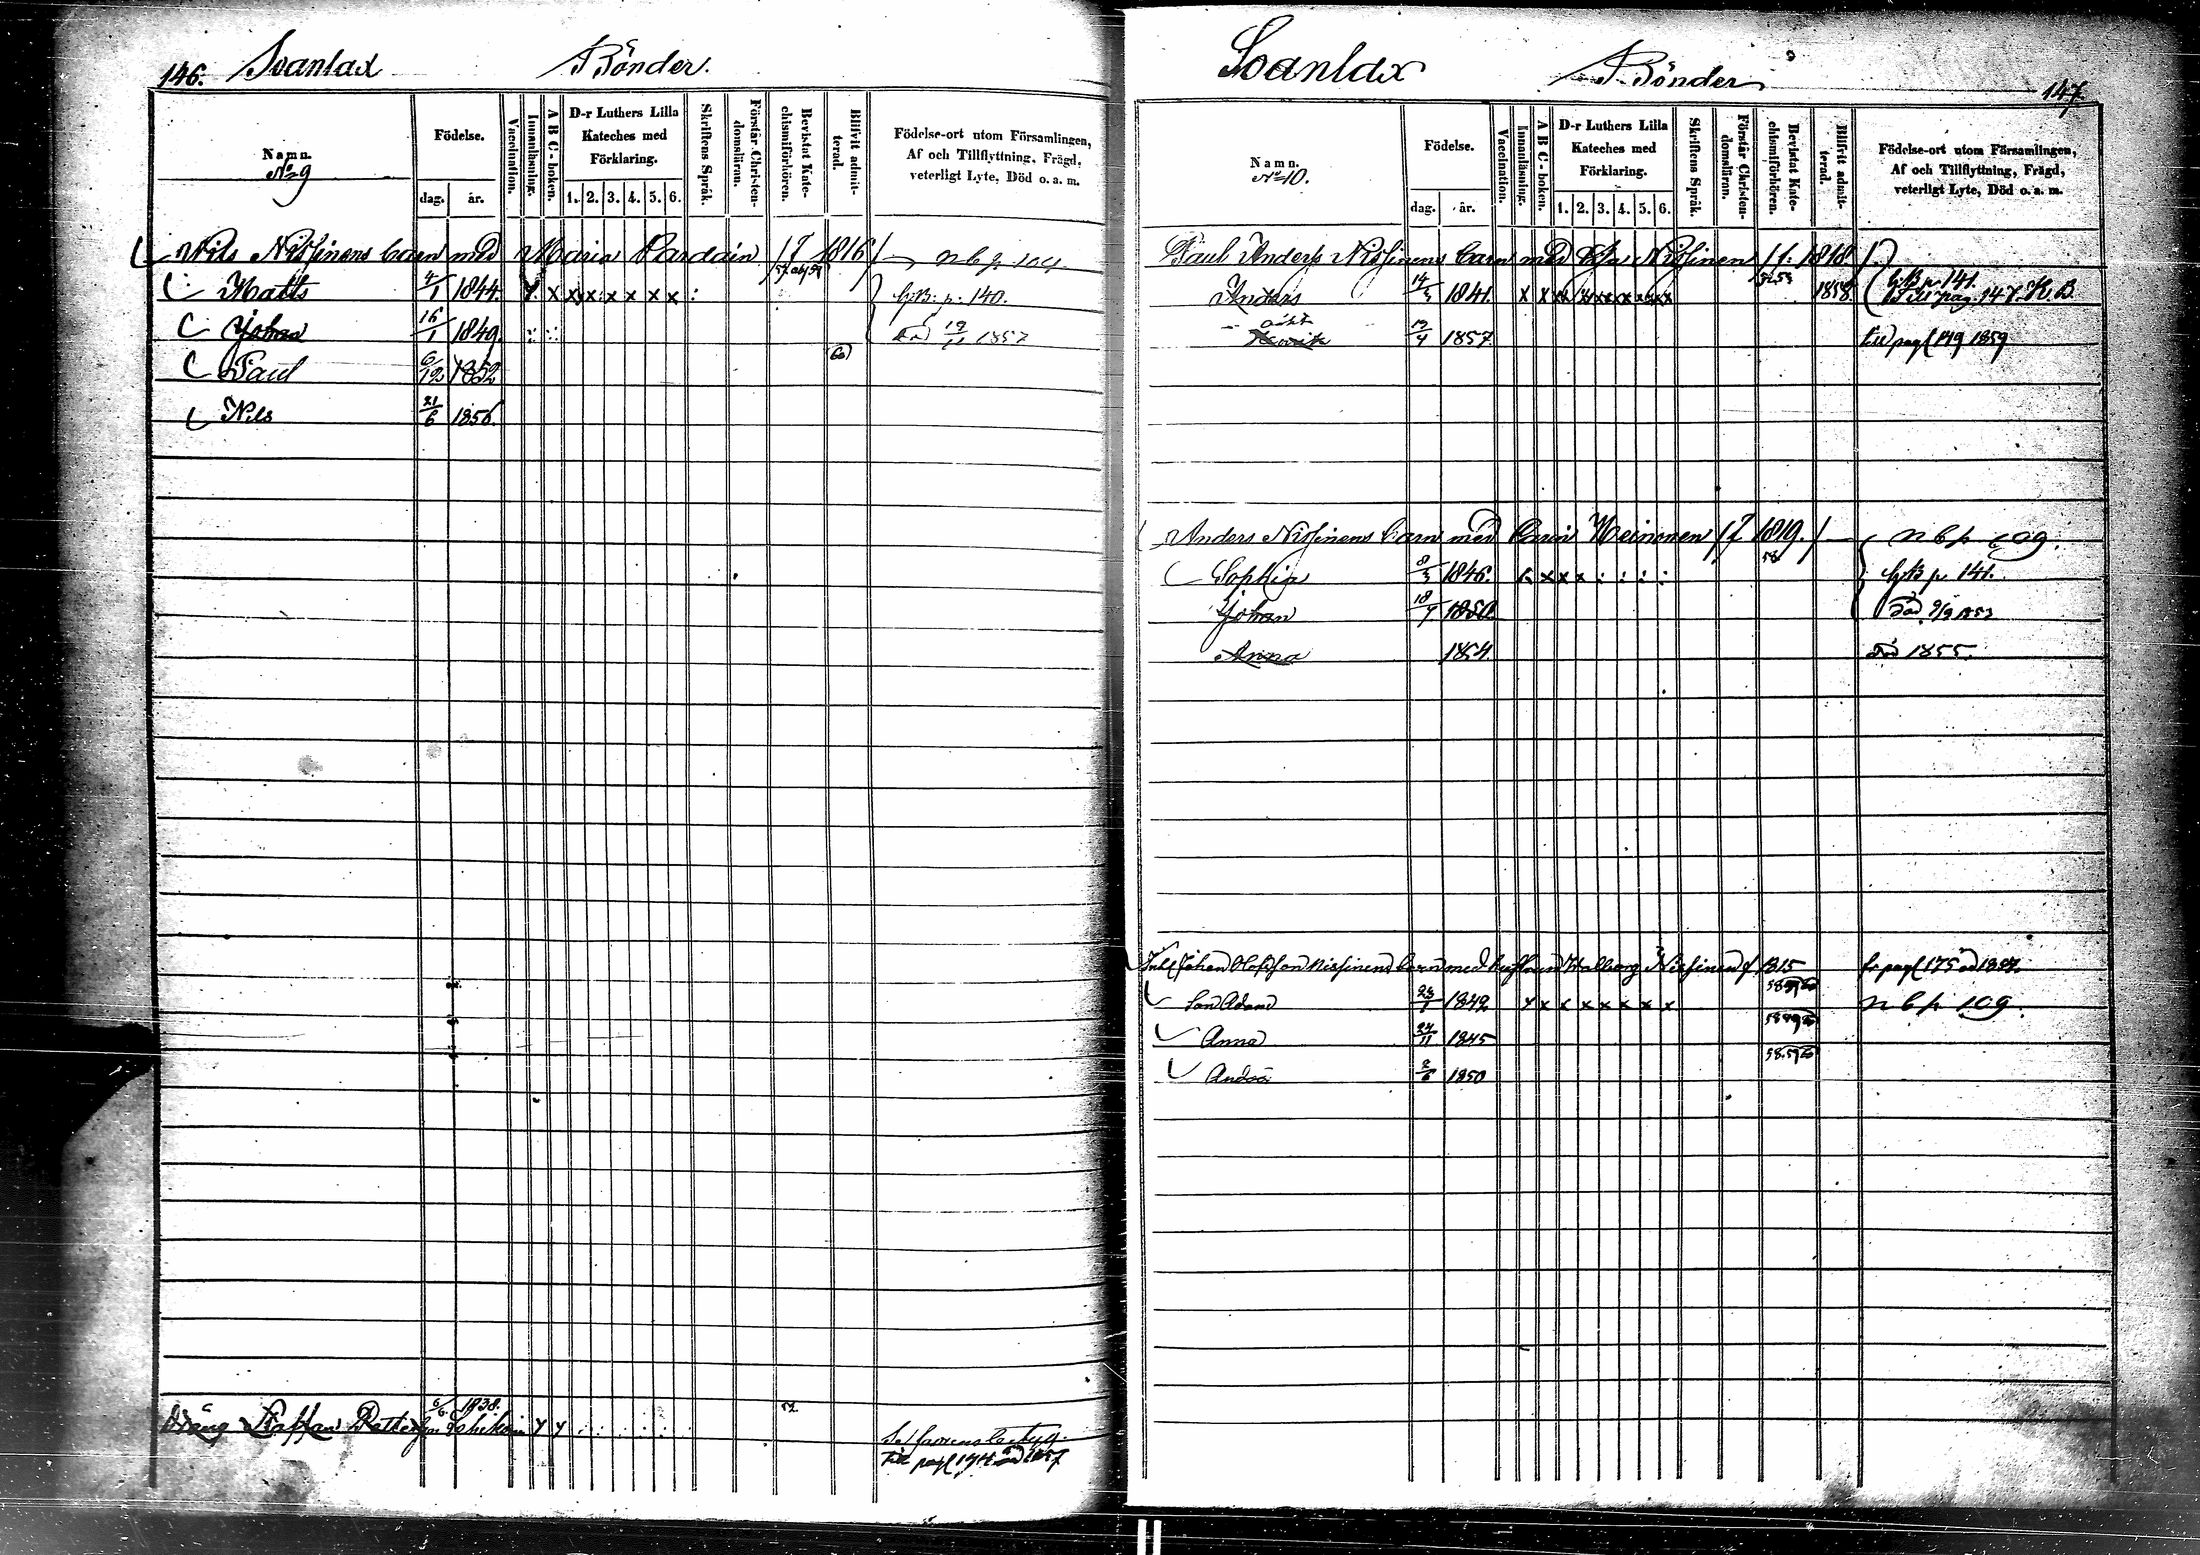 146. Soanlax Bönder.
Namn.
No 9
Födelse.
dag. år.
Vaccination.
Innanläsning.
A B C-boken.
D-r Luthers Lilla
Kateches med
Förklaring.
1. 2. 3. 4. 5. 6.
Skriftens Språk.
Förstår Christen-
domsläran.
Bevistat Kate-
chismiförhören.
Blifvit admit-
terad.
Födelse-ort utom Församlingen,
Af och Tillflyttning, Frägd,
veterligt Lyte, Död o. a. m.
Nils Nissinens barn med Maria Pardain / f 1816 /
Matts 4/1 1844. x x x x x x x : G.B. p. 140.
Johan 16/1 1849. : : : Död 1857
Paul 6/12 1852
Nils 21/6 1856.
Dräng Staffan 6/6 1838. x x 57
till pag 1857
Soanlax Bönder 147.
Namn.
No 10.
Födelse.
dag. år.
Vaccination.
Innanläsning.
A B C-boken.
D-r Luthers Lilla
Kateches med
Förklaring.
1. 2. 3. 4. 5. 6.
Skriftens Språk.
Förstår Christen-
domsläran.
Bevistat Kate-
chismiförhören.
Blifvit admit-
terad.
Födelse-ort utom Församlingen,
Af och Tillflyttning, Frägd,
veterligt Lyte, Död o. a. m.
Paul Anders Nissinens barn med Nissinen / f. 1818 /
Anders 14/3 1841. x x x x x x x x 1858. G.B. p. 141.
till pag. 147. K.B.
1857. till pag 149 1859
Anders Nissinens barn med Carin Heinonen / f 1819. / n b p 109.
Sophia 8/3 1846. x x x x : : : : 58 G.B p. 141.
Johan 18/7 1850. Död 9/9 1853
Anna 1854. Död 1855.
Johan Olofsson Nissinens barn med hustrun Walborg Nissinen f 1815 fr pag 175 1857.
Son Adam 23/1 1842 x x x x x x x x n b p 109.
Anna 24/11 1845
2/6 1850